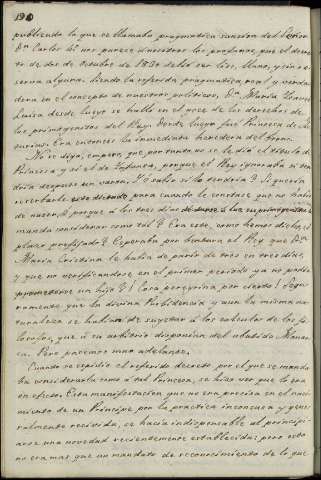 190
publicado lo que se llamaba pragmatica sancion del Señor
Dn Carlos 4º nos parece á nosotros los profanos, que el decre-
to de dos de octubre de 1830 debió ser liso, llano, y sin re-
serva alguna. Siendo la referida pragmatica real y verda-
dera en el concepto de nuestros politicos, Dª Maria Isabel
Luisa desde luego se halló en el goce de los derechos de
los primogenitos del Rey. Desde luego fué Princesa de As-
turias. Era entonces la inmediata heredera del trono.
No se diga, empero, que por tanto no se le dió el titulo de
Princesa y sí el de Infanta, porque el Rey ignoraba si ten-
dria despues un varon. ¿Y cuando lo sabria? ¿Se queria
reservarle para cuando le constase que no habia
de nacer, ó porque á los tres dias
manda considerar como tal? ¿Era este, como hemos dicho, el
plazo prefijado? ¿Esperaba por ventura el Rey que Dª
Maria Cristina le habia de parir de tres en tres dias,
y que no verificandose en el primer periodo ya no podia
un hijo? ¡Cosa peregrina por cierto! Segu-
ramente que la divina Providencia y aun la misma na-
turaleza se habian de sugetar á los calculos de los fi-
losofos, que á su arbitrio disponian del abatido Monar-
ca. Pero pasemos mas adelante.
Cuando se espidió el referido decreto por el que se manda-
ba considerarla como á tal Princesa, se hizo ver que lo era
en efecto. Esta manifestacion que no era precisa en el naci-
miento de un Principe por la practica inconcusa y gene-
ralmente recibida, se hacia indispensable al principi-
arse una novedad recientemente establecida; pero esto
no era mas que un mandato de reconocimiento de lo que